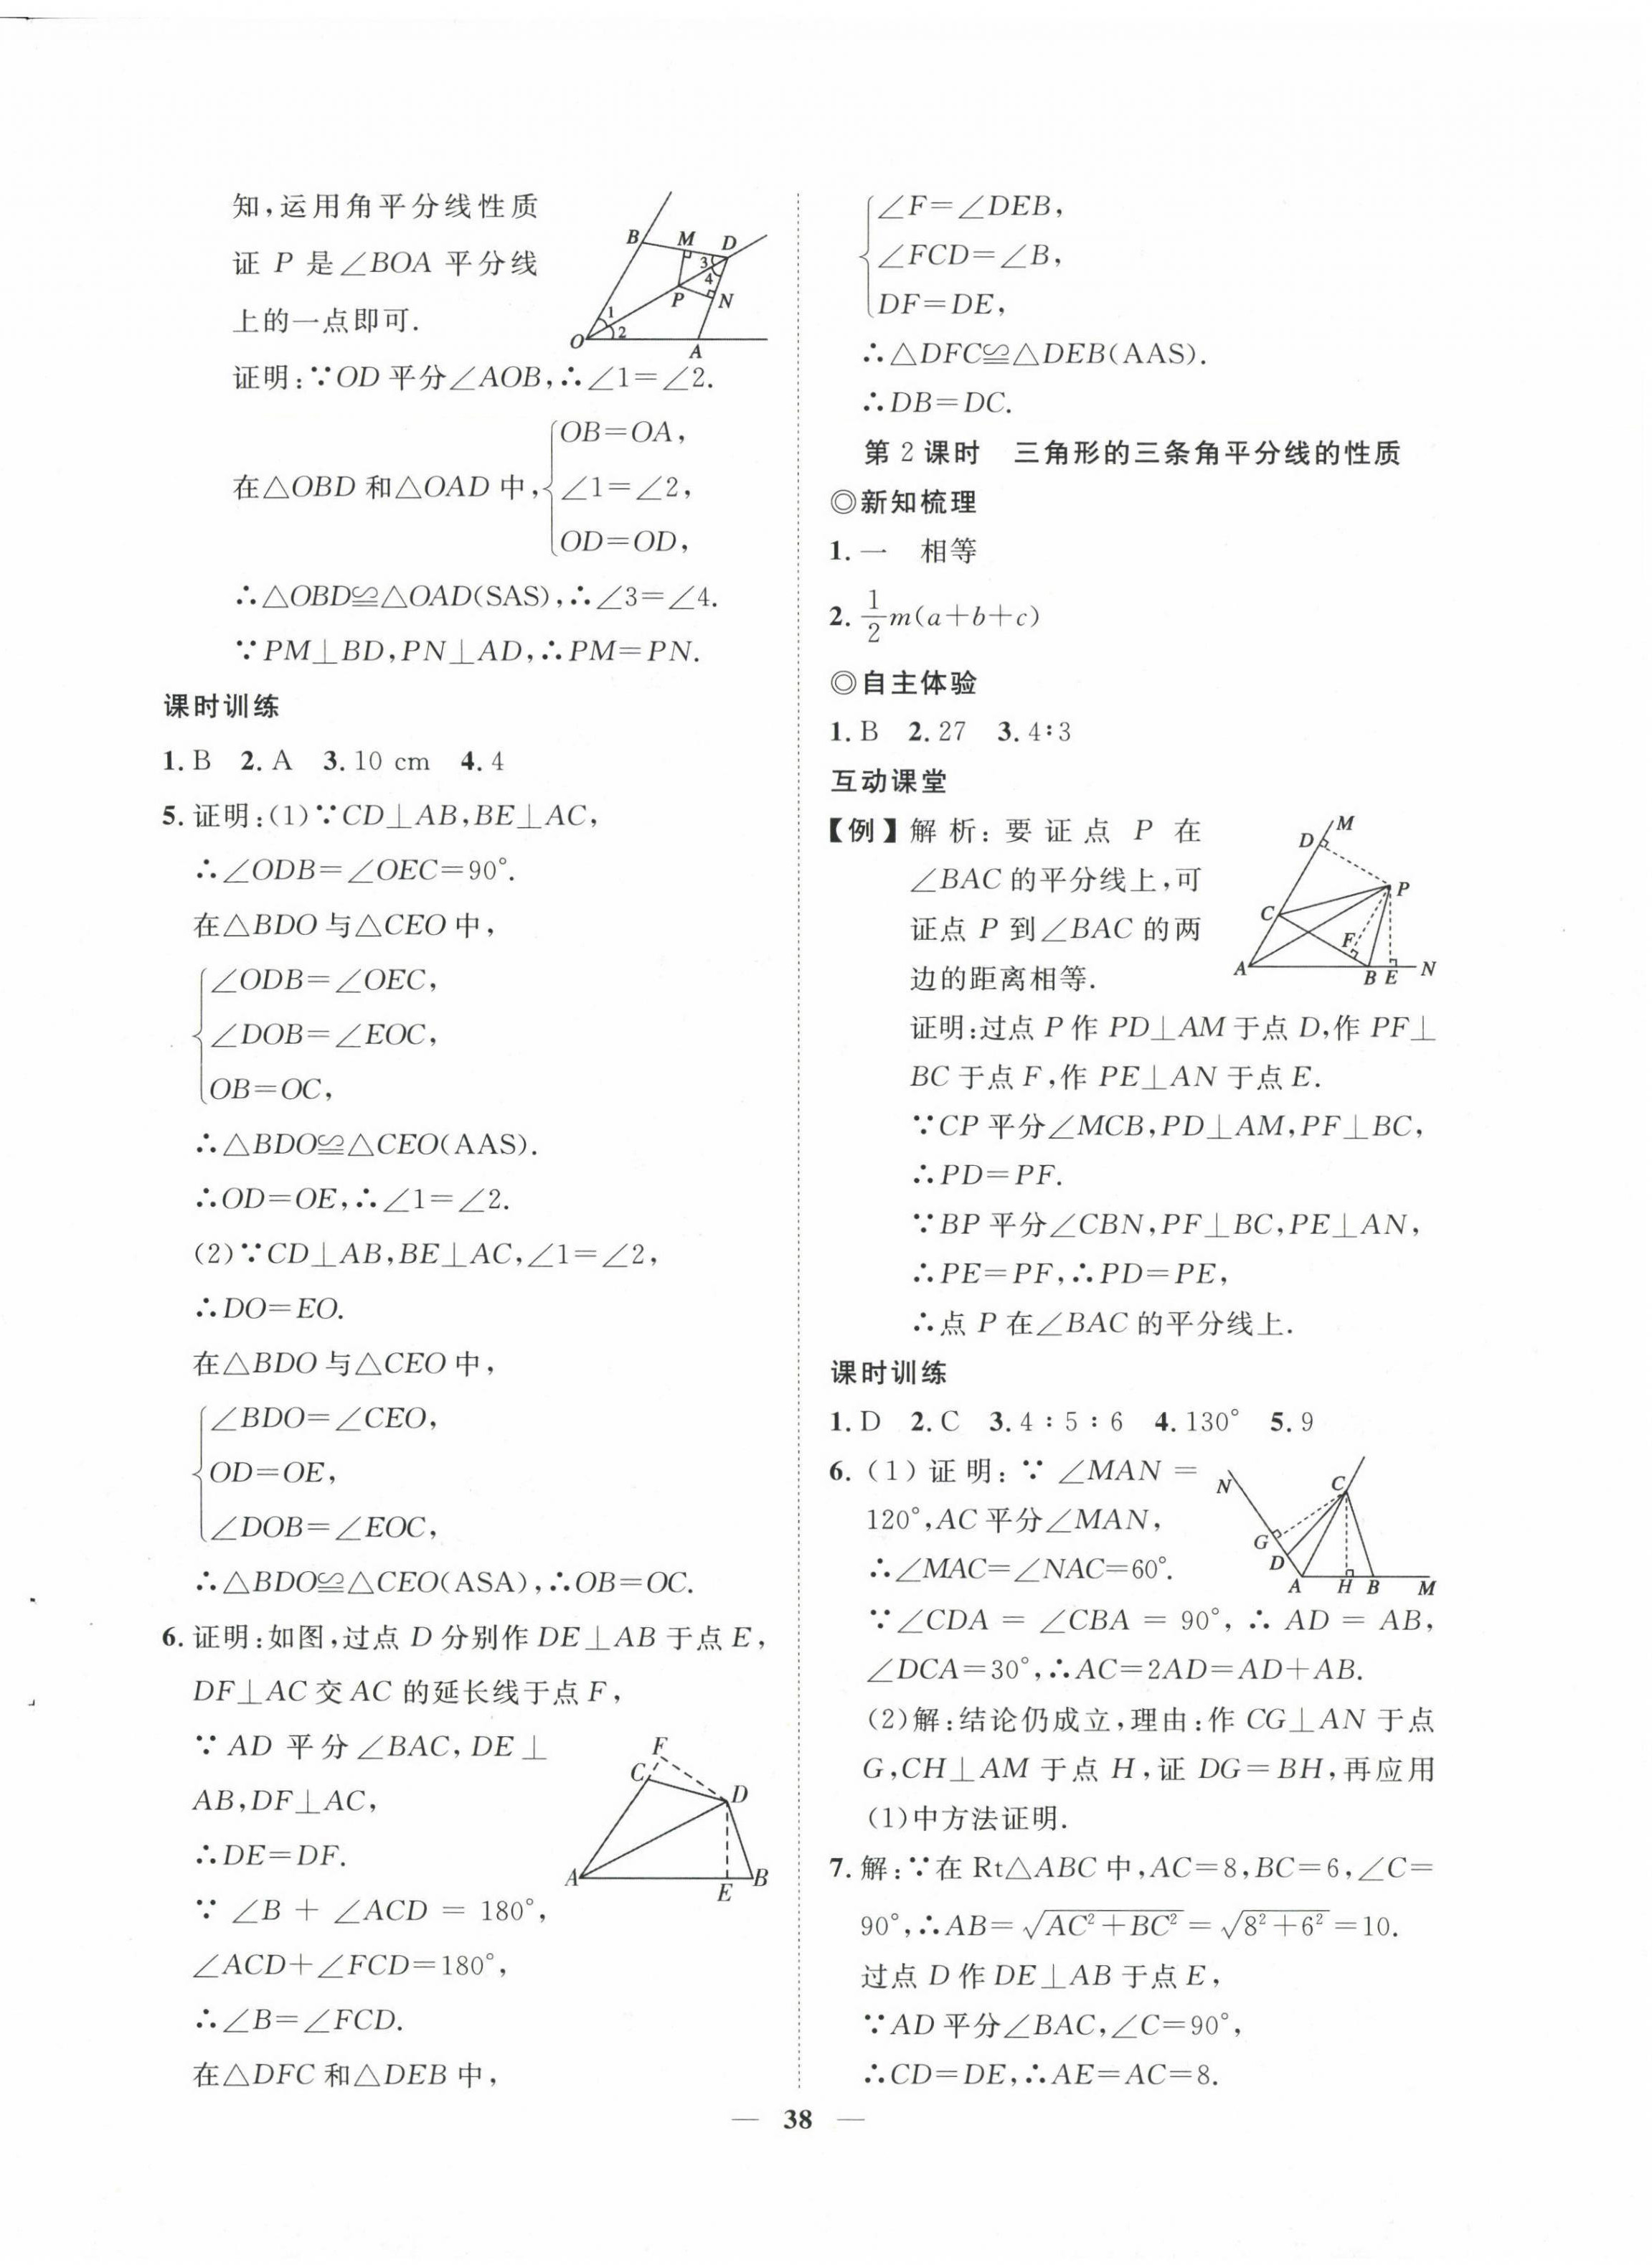 知,运用角平分线性质
证 P 是∠BOA 平分线
上的一点即可.
B M D 3 4 P N 1 2 O A
证明:∵OD 平分∠AOB,∴∠1=∠2.
在△OBD 和△OAD 中,
OB=OA,
∠1=∠2,
OD=OD,
∴△OBD≌△OAD(SAS),∴∠3=∠4.
∵PM⊥BD,PN⊥AD,∴PM=PN.
课时训练
1. B 2. A 3. 10 cm 4. 4
5. 证明:(1)∵CD⊥AB,BE⊥AC,
∴∠ODB=∠OEC=90°.
在△BDO 与△CEO 中,
∠ODB=∠OEC,
∠DOB=∠EOC,
OB=OC,
∴△BDO≌△CEO(AAS).
∴OD=OE,∴∠1=∠2.
(2)∵CD⊥AB,BE⊥AC,∠1=∠2,
∴DO=EO.
在△BDO 与△CEO 中,
∠BDO=∠CEO,
OD=OE,
∠DOB=∠EOC,
∴△BDO≌△CEO(ASA),∴OB=OC.
6. 证明:如图,过点 D 分别作 DE⊥AB 于点 E,
DF⊥AC 交 AC 的延长线于点 F,
∵ AD 平分∠BAC, DE⊥
AB,DF⊥AC,
∴DE=DF.
F C D A E B
∵ ∠B + ∠ACD = 180°,
∠ACD+∠FCD=180°,
∴∠B=∠FCD.
在△DFC 和△DEB 中,
∠F=∠DEB,
∠FCD=∠B,
DF=DE,
∴△DFC≌△DEB(AAS).
∴DB=DC.
第 2 课时 三角形的三条角平分线的性质
◎新知梳理
1. 一 相等
2. 1/2 m(a+b+c)
◎自主体验
1. B 2. 27 3. 4∶3
互动课堂
【例】解析:要证点 P 在
∠BAC 的平分线上,可
证点 P 到∠BAC 的两
边的距离相等.
M D P C F A B E N
证明:过点 P 作 PD⊥AM 于点 D,作 PF⊥
BC 于点 F,作 PE⊥AN 于点 E.
∵CP 平分∠MCB,PD⊥AM,PF⊥BC,
∴PD=PF.
∵BP 平分∠CBN,PF⊥BC,PE⊥AN,
∴PE=PF,∴PD=PE,
∴点 P 在∠BAC 的平分线上.
课时训练
1. D 2. C 3. 4∶5∶6 4. 130° 5. 9
6. (1)证明:∵∠MAN=
120°,AC 平分∠MAN,
∴∠MAC=∠NAC=60°.
N C G D A H B M
∵∠CDA=∠CBA=90°,∴AD=AB,
∠DCA=30°,∴AC=2AD=AD+AB.
(2)解:结论仍成立,理由:作 CG⊥AN 于点
G,CH⊥AM 于点 H,证 DG=BH,再应用
(1)中方法证明.
7. 解:∵在 Rt△ABC 中,AC=8,BC=6,∠C=
90°,∴AB=√(AC²+BC²)=√(8²+6²)=10.
过点 D 作 DE⊥AB 于点 E,
∵AD 平分∠BAC,∠C=90°,
∴CD=DE,∴AE=AC=8.
— 38 —